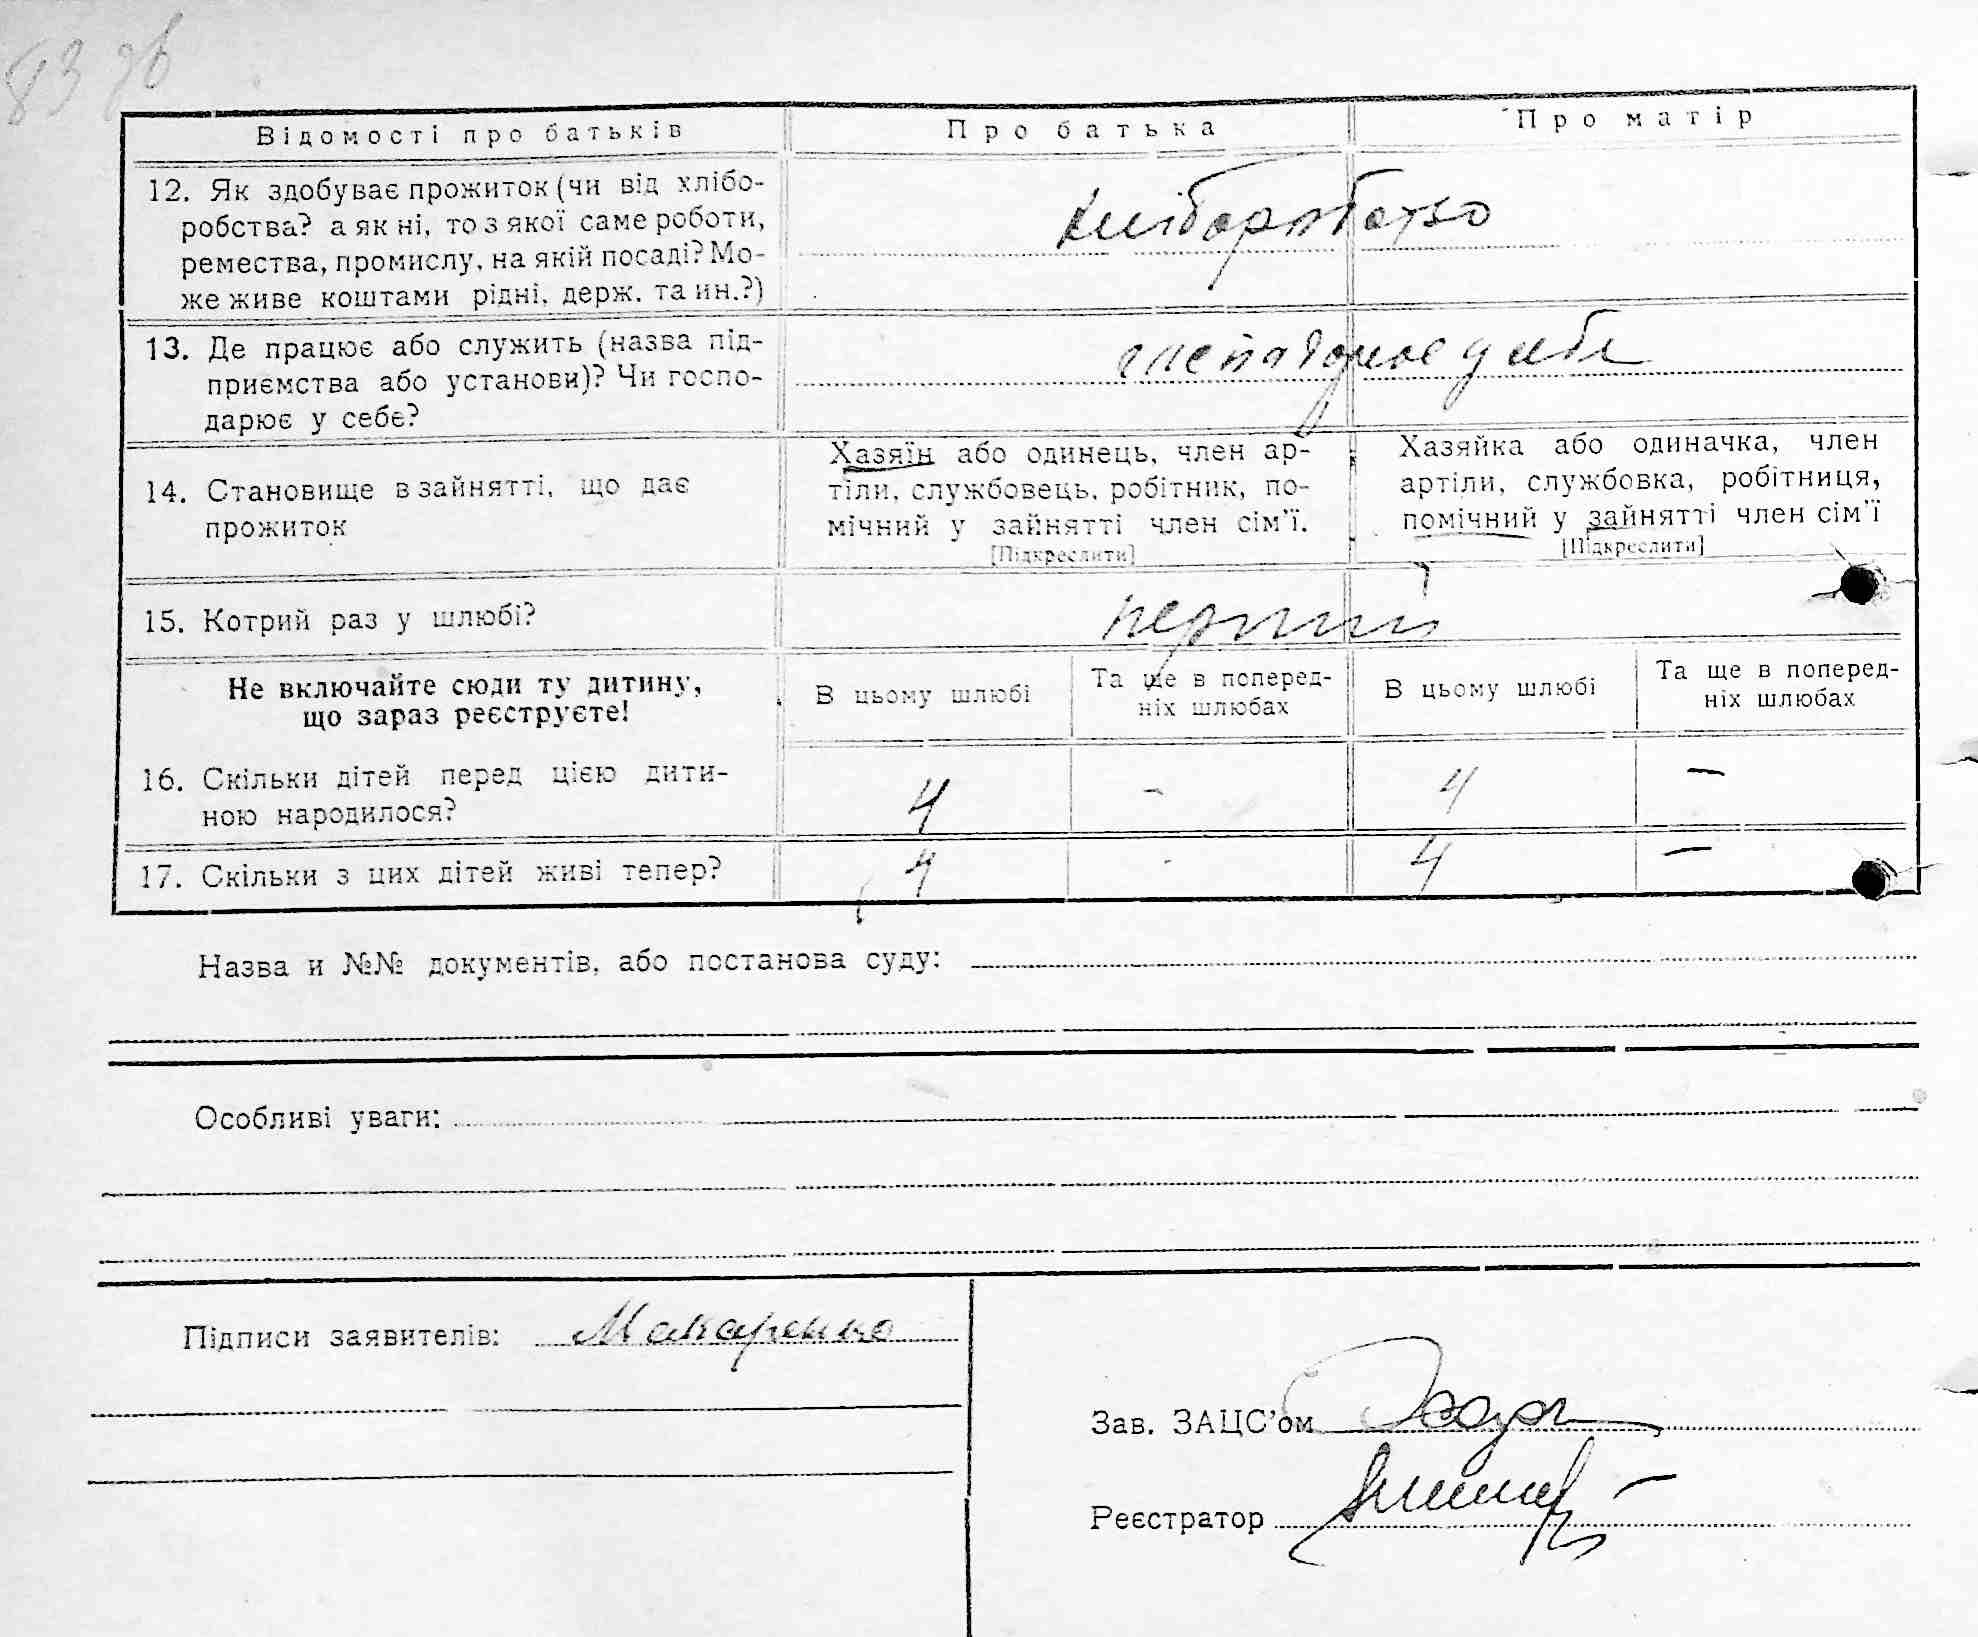 83 зв
Відомості про батьків
Про батька
Про матір
12. Як здобуває прожиток (чи від хлібо-
робства? а як ні, то з якої саме роботи,
ремества, промислу, на якій посаді? Мо-
же живе коштами рідні, держ. та ин.?)
хліборобство
13. Де працює або служить (назва під-
приємства або установи)? Чи госпо-
дарює у себе?
господарює у себе
14. Становище в зайнятті, що дає
прожиток
Хазяїн або одинець, член ар-
тіли, службовець, робітник, по-
мічний у зайнятті член сім'ї.
[Підкреслити]
Хазяйка або одиначка, член
артіли, службовка, робітниця,
помічний у зайнятті член сім'ї
[Підкреслити]
15. Котрий раз у шлюбі?
перший
Не включайте сюди ту дитину,
що зараз реєструєте!
В цьому шлюбі
Та ще в поперед-
ніх шлюбах
В цьому шлюбі
Та ще в поперед-
ніх шлюбах
16. Скільки дітей перед цією дити-
ною народилося?
4 - 4 -
17. Скільки з цих дітей живі тепер?
4 - 4 -
Назва и №№ документів, або постанова суду:
Особливі уваги:
Підписи заявителів: Макаренко
Зав. ЗАЦС'ом
Реєстратор